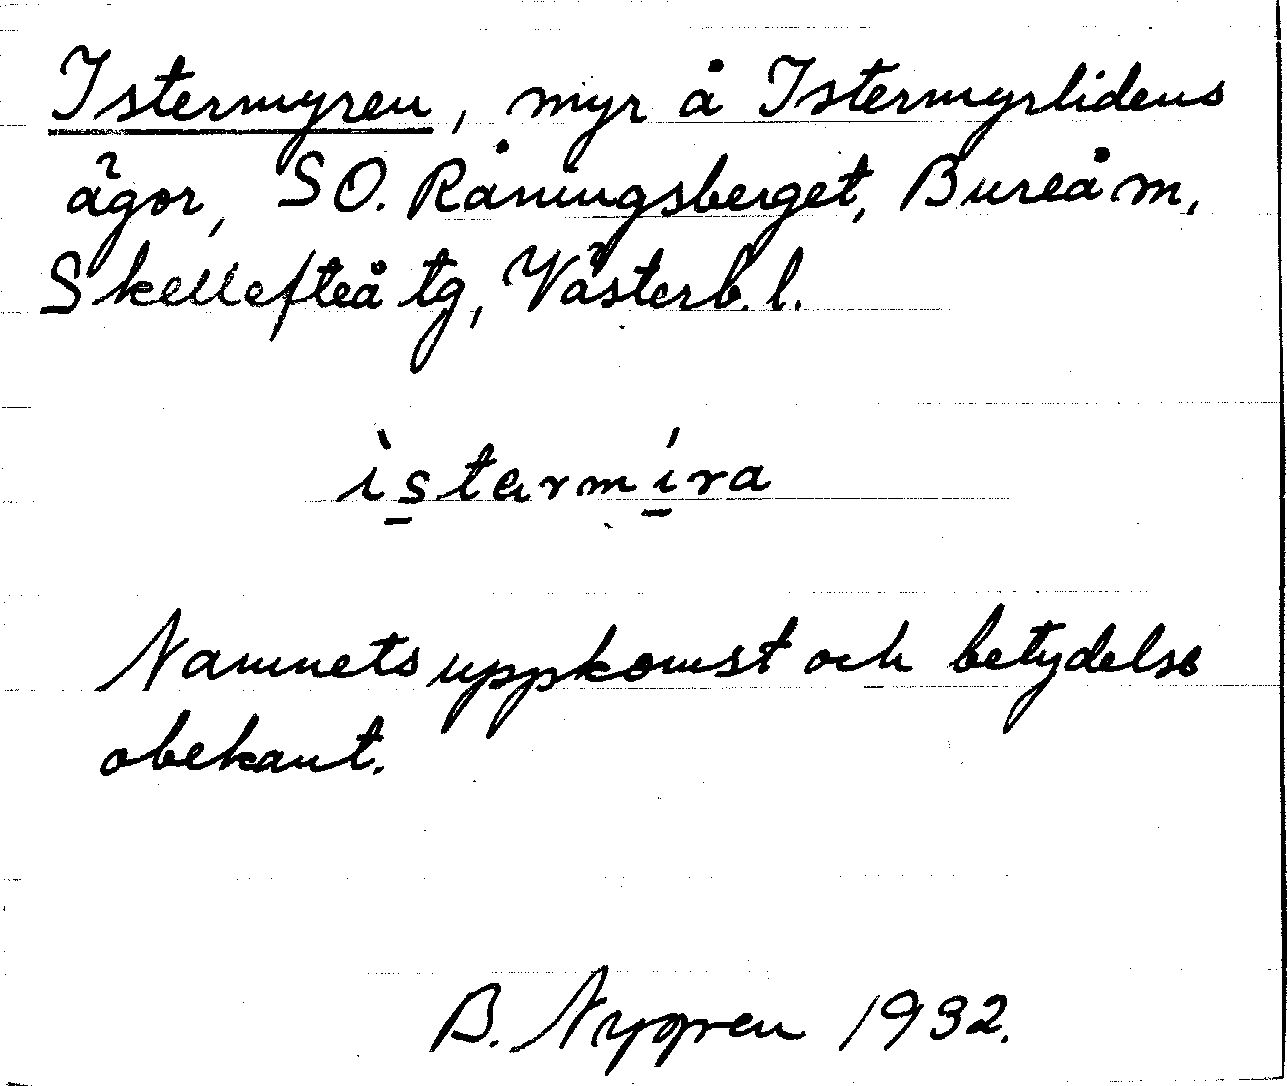 Istermyren, myr å Istermyrlidens
ägor, SO. Råningsberget, Bureå m,
Skellefteå tg, Västerb. l.
ìstarmíra
Namnets uppkomst och betydelse
obekant.
B. Nygren 1932.